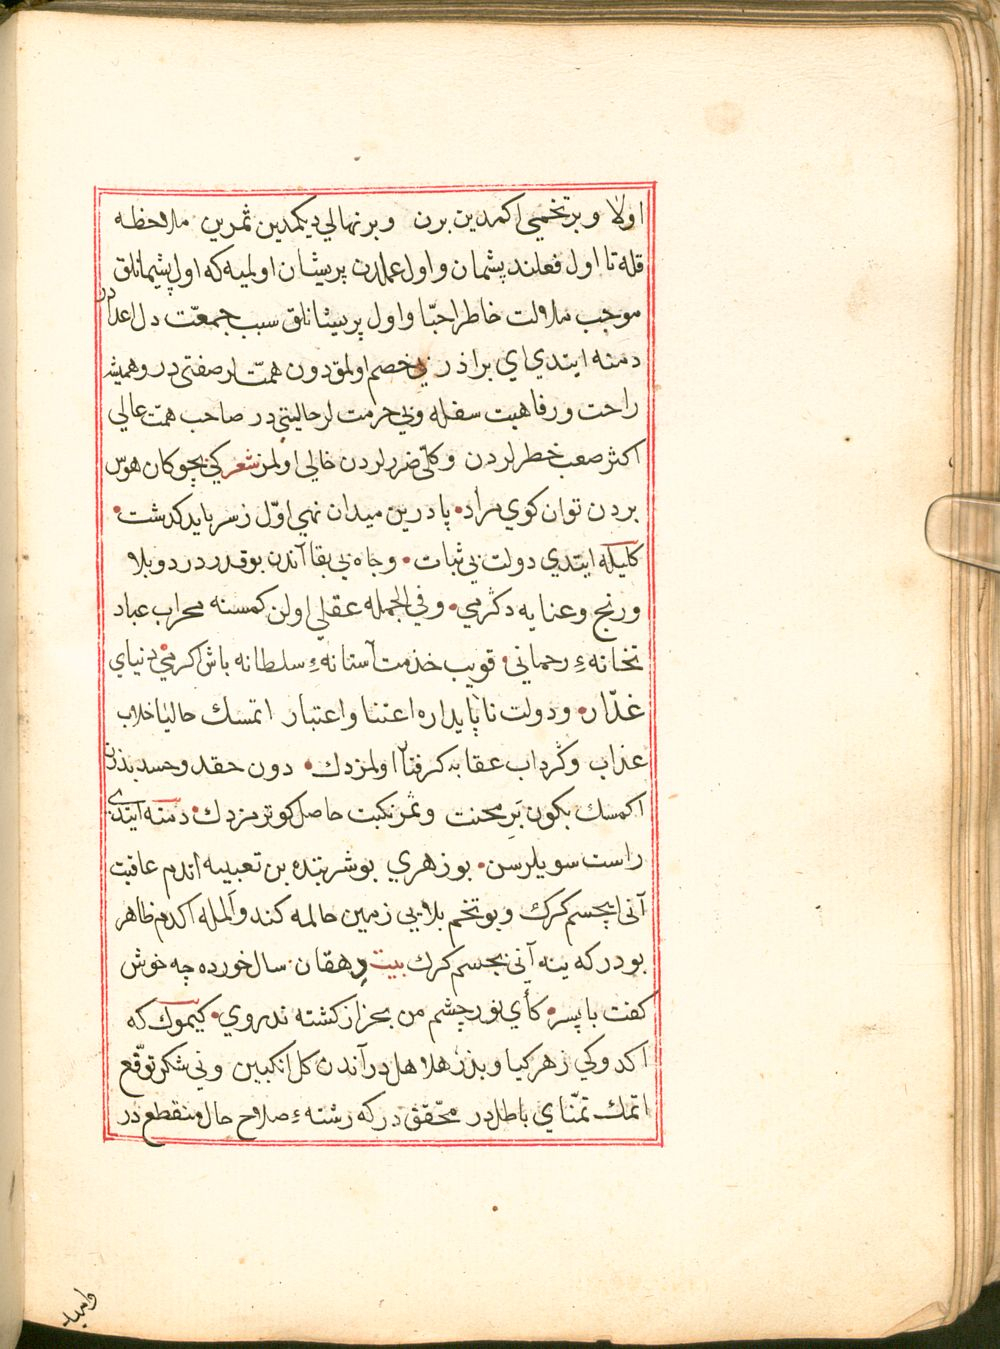 اولا و بر تخمی اکمدین برن و بر نهالی دیکمدین ثمرین ملاحظه
قله تا اول فعلندن پشمان و اول عملدن پریشان اولمیه که اول پشیمانلق
موجب ملالت خاطر احبّا و اول پریشانلق سبب جمعیّت دل اعدادر
دمنه ایتدی ای براذر بی خصم اولمق دون همّتلر صفتی در و همیشه
راحت و رفاهیت سفله و بی حرمتلر حالیتی در صاحب همّت عالی
اکثر صعب خطرلردن و کلّی ضررلردن خالی اولمز شعر کی بچوکان هوس
بردن توان کوی مراد • پا درین میدان نهی اوّل ز سر باید کذشت •
کلیله ایتدی دولت بی ثبات • و جاه بی بقا آندن بوقدر درد و بلا
و رنج و عنایه دکرمی • و فی الجمله عقلی اولن کمسنه محراب عباد
تخانهٔ رحمانی • قویب خذمت آستانهٔ سلطانه باش اکرمی • دنیای
غدّار • و دولت ناپایداره اعتنا و اعتبار اتمسك حالیا خلاب
عذاب و کرداب عقابه کرفتار اولمزدك • دون حقد و حسد بذرن
اکمسك بکون بَر محنت و ثمر نکبت حاصل کوترمزدك • دمنه ایتدی
راست سویلرسن • بو زهری بو شربتده بن تعبیه اتدم عاقبت
آنی اچسم کرك و بو تخم بلایی زمین حالمه کندو المله اکدم ظاهر
بودر که ینه آنی بجسم کرك بیت دهقان سال خورده چه خوش
کفت با پسر • کأی نور چشم من بجز از کشته ندروی • کیموك که
اکدوکی زهر کیا و بذر هلاهل در آندن کل انکبین و نی شکر توقّع
اتمك تمنّای باطلدر محقّق در که رشتهٔ صلاح حال منقطع در
وامید